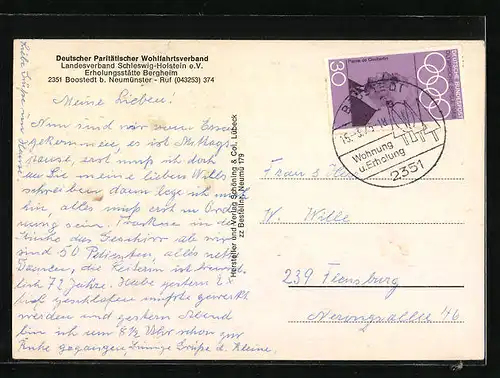 Deutscher Paritätischer Wohlfahrtsverband
Landesverband Schleswig-Holstein e.V.
Erholungsstätte Bergheim
2351 Boostedt b. Neumünster - Ruf (043253) 374
Liebe Grüße im Hause!
Meine Lieben!
Nun sind wir vom Essen
gekommen, es ist Mittags
pause, erst muß ich doch
an Sie meine lieben Willes
schreiben, dann lege ich mich
hin, alles muß erst in Ord
nung sein.
Küche das Geschirr ab wir
sind 50 Patienten, alles nette
Damen, die
lich 72 Jahre. Habe gestern
geschlafen mußte geweckt
werden und gestern Abend
bin ich um 8½ Uhr schon zur
Ruhe gegangen, Innige Grüße d. Kleine.
Hersteller und Verlag Schöning & Co., Lübeck
zz Bestell-Nr. Neumü 179
30
DEUTSCHE BUNDESPOST
Pierre de Coubertin
BOOSTEDT
Wohnung
u. Erholung
2351
W. Wille
239 Flensburg
Nerongsallee 46